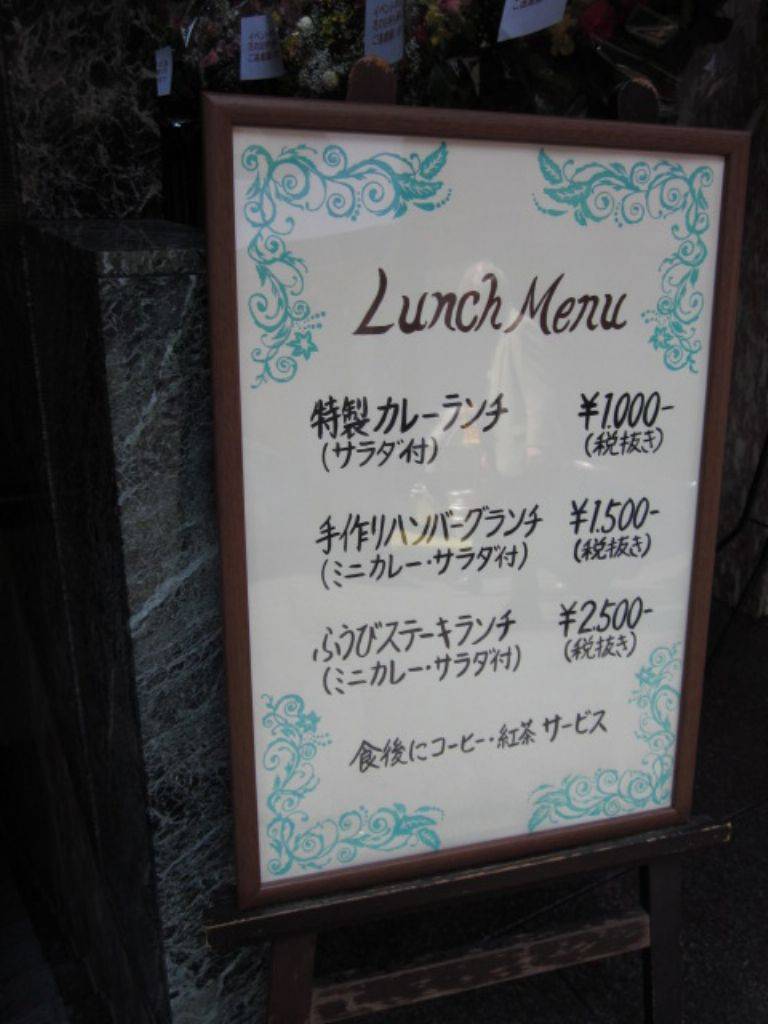 Lunch Menu
特製カレーランチ ¥1.000-
(サラダ付) (税抜き)
手作りハンバーグランチ ¥1.500-
(ミニカレー・サラダ付) (税抜き)
ふうびステーキランチ ¥2.500-
(ミニカレー・サラダ付) (税抜き)
食後にコーヒー・紅茶 サービス